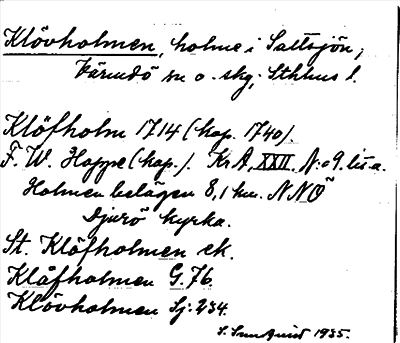 Klövholmen, holme i Saltsjön,
Värmdö sn o. skg, Sthlms l.
Klöfholm 1714 (kop. 1740).
F. W. Hoppe (kop.). Kr A, XXII. N:o 9. lit. a.
Holmen belägen 8,1 km. NNÖ
Djurö kyrka.
St. Klöfholmen ek.
Klåfholmen G. 76.
Klövholmen Sj: 234.
S. Sundquist 1935.